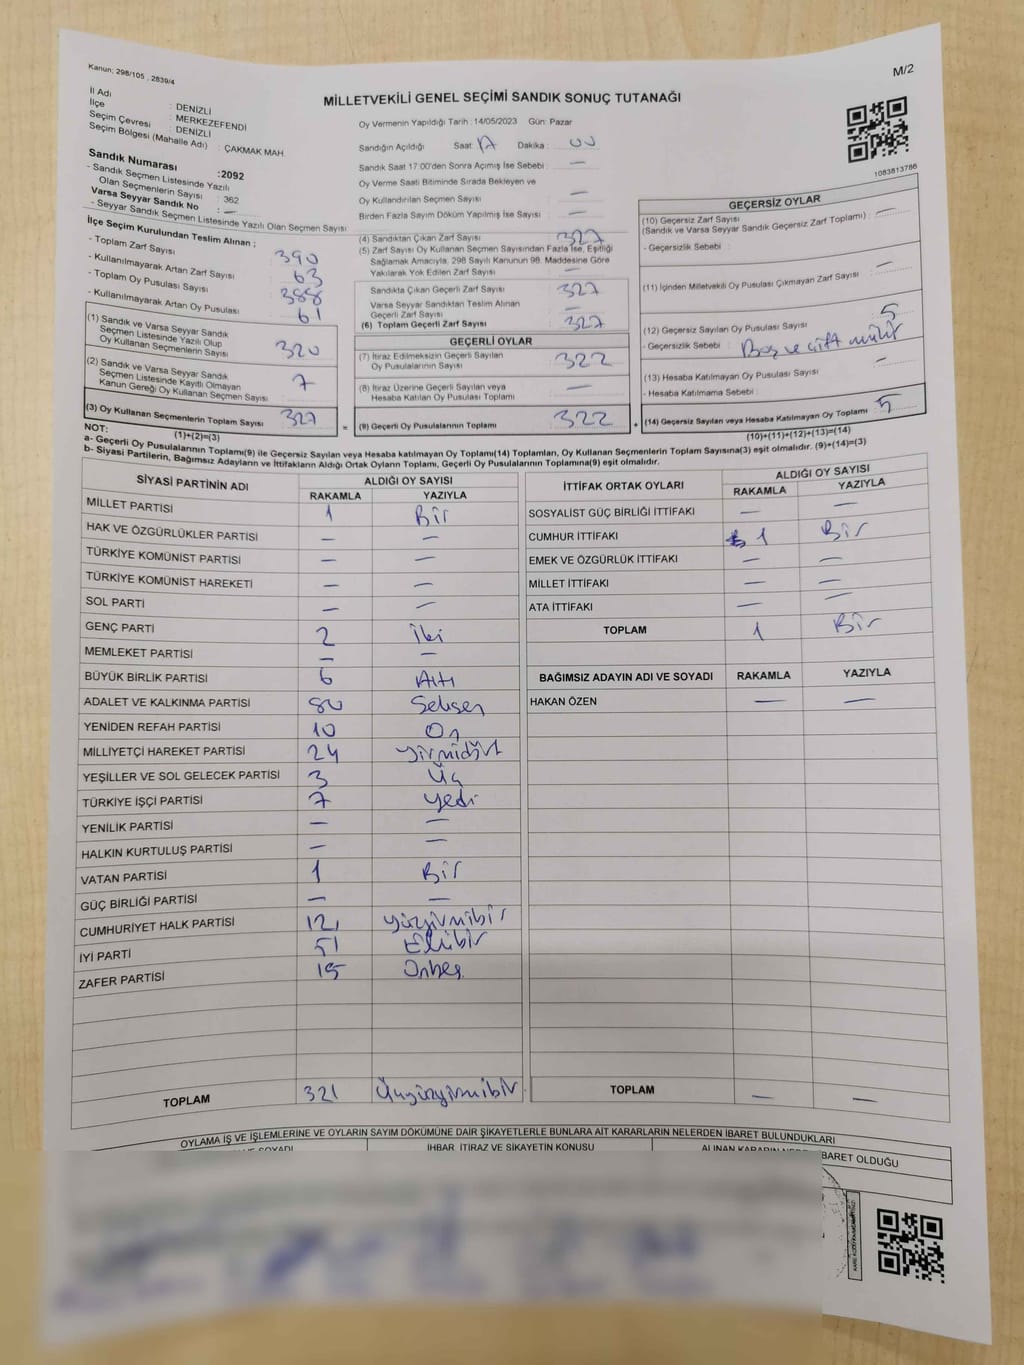 Kanun; 298/105 , 2839/4
M/2
MİLLETVEKİLİ GENEL SEÇİMİ SANDIK SONUÇ TUTANAĞI
İl Adı : DENİZLİ
İlçe : MERKEZEFENDİ
Seçim Çevresi : DENİZLİ
Seçim Bölgesi (Mahalle Adı) : ÇAKMAK MAH.
Sandık Numarası :2092
- Sandık Seçmen Listesinde Yazılı
Olan Seçmenlerin Sayısı : 362
Varsa Seyyar Sandık No : —
- Seyyar Sandık Seçmen Listesinde Yazılı Olan Seçmen Sayısı
İlçe Seçim Kurulundan Teslim Alınan ;
- Toplam Zarf Sayısı 390
- Kullanılmayarak Artan Zarf Sayısı 63
- Toplam Oy Pusulası Sayısı 388
- Kullanılmayarak Artan Oy Pusulası 61
(1) Sandık ve Varsa Seyyar Sandık
Seçmen Listesinde Yazılı Olup
Oy Kullanan Seçmenlerin Sayısı 320
(2) Sandık ve Varsa Seyyar Sandık
Seçmen Listesinde Kayıtlı Olmayan
Kanun Gereği Oy Kullanan Seçmen Sayısı 7
(3) Oy Kullanan Seçmenlerin Toplam Sayısı 327
(1)+(2)=(3)
Oy Vermenin Yapıldığı Tarih : 14/05/2023 Gün: Pazar
Sandığın Açıldığı Saat: 17 Dakika : 00
Sandık Saat 17:00'den Sonra Açımış İse Sebebi : —
Oy Verme Saati Bitiminde Sırada Bekleyen ve
Oy Kullandırılan Seçmen Sayısı —
Birden Fazla Sayım Döküm Yapılmış İse Sayısı —
(4) Sandıktan Çıkan Zarf Sayısı 327
(5) Zarf Sayısı Oy Kullanan Seçmen Sayısından Fazla İse, Eşitliği
Sağlamak Amacıyla, 298 Sayılı Kanunun 98. Maddesine Göre
Yakılarak Yok Edilen Zarf Sayısı —
Sandıkta Çıkan Geçerli Zarf Sayısı 327
Varsa Seyyar Sandıktan Teslim Alınan
Geçerli Zarf Sayısı —
(6) Toplam Geçerli Zarf Sayısı 327
GEÇERLİ OYLAR
(7) İtiraz Edilmeksizin Geçerli Sayılan
Oy Pusulalarının Sayısı 322
(8) İtiraz Üzerine Geçerli Sayılan veya
Hesaba Katılan Oy Pusulası Toplamı —
= (9) Geçerli Oy Pusulalarının Toplamı 322 +
1083813786
GEÇERSİZ OYLAR
(10) Geçersiz Zarf Sayısı —
(Sandık ve Varsa Seyyar Sandık Geçersiz Zarf Toplamı) :
- Geçersizlik Sebebi :
(11) İçinden Milletvekili Oy Pusulası Çıkmayan Zarf Sayısı —
(12) Geçersiz Sayılan Oy Pusulası Sayısı 5
- Geçersizlik Sebebi : Boş ve çift mühür
(13) Hesaba Katılmayan Oy Pusulası Sayısı —
- Hesaba Katılmama Sebebi :
(14) Geçersiz Sayılan veya Hesaba Katılmayan Oy Toplamı 5
(10)+(11)+(12)+(13)=(14)
NOT:
a- Geçerli Oy Pusulalarının Toplamı(9) ile Geçersiz Sayılan veya Hesaba katılmayan Oy Toplamı(14) Toplamları, Oy Kullanan Seçmenlerin Toplam Sayısına(3) eşit olmalıdır. (9)+(14)=(3)
b- Siyasi Partilerin, Bağımsız Adayların ve İttifakların Aldığı Ortak Oyların Toplamı, Geçerli Oy Pusulalarının Toplamına(9) eşit olmalıdır.
SİYASİ PARTİNİN ADI ALDIĞI OY SAYISI
RAKAMLA YAZIYLA
MİLLET PARTİSİ 1 Bir
HAK VE ÖZGÜRLÜKLER PARTİSİ — —
TÜRKİYE KOMÜNİST PARTİSİ — —
TÜRKİYE KOMÜNİST HAREKETİ — —
SOL PARTİ — —
GENÇ PARTİ 2 İki
MEMLEKET PARTİSİ — —
BÜYÜK BİRLİK PARTİSİ 6 Altı
ADALET VE KALKINMA PARTİSİ 80 Seksen
YENİDEN REFAH PARTİSİ 10 On
MİLLİYETÇİ HAREKET PARTİSİ 24 Yirmidört
YEŞİLLER VE SOL GELECEK PARTİSİ 3 Üç
TÜRKİYE İŞÇİ PARTİSİ 7 Yedi
YENİLİK PARTİSİ — —
HALKIN KURTULUŞ PARTİSİ — —
VATAN PARTİSİ 1 Bir
GÜÇ BİRLİĞİ PARTİSİ — —
CUMHURİYET HALK PARTİSİ 121 Yüzyirmibir
İYİ PARTİ 51 Ellibir
ZAFER PARTİSİ 15 Onbeş
TOPLAM 321 Üçyüzyirmibir
İTTİFAK ORTAK OYLARI ALDIĞI OY SAYISI
RAKAMLA YAZIYLA
SOSYALİST GÜÇ BİRLİĞİ İTTİFAKI — —
CUMHUR İTTİFAKI 1 Bir
EMEK VE ÖZGÜRLÜK İTTİFAKI — —
MİLLET İTTİFAKI — —
ATA İTTİFAKI — —
TOPLAM 1 Bir
BAĞIMSIZ ADAYIN ADI VE SOYADI RAKAMLA YAZIYLA
HAKAN ÖZEN — —
TOPLAM — —
OYLAMA İŞ VE İŞLEMLERİNE VE OYLARIN SAYIM DÖKÜMÜNE DAİR ŞİKAYETLERLE BUNLARA AİT KARARLARIN NELERDEN İBARET BULUNDUKLARI
SOYADI İHBAR, İTİRAZ VE ŞİKAYETİN KONUSU ALINAN KARARIN İBARET OLDUĞU